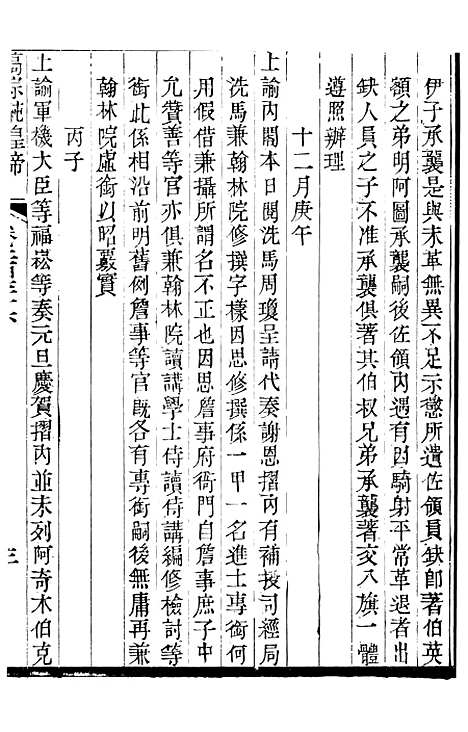 伊子承襲是與未革無異不足示懲所遺佐領員缺卽著伯英
額之弟明阿圖承襲嗣後佐領內遇有因騎射平常革退者出
缺人員之子不准承襲俱著其伯叔兄弟承襲著交八旗一體
遵照辦理
十二月庚午
上諭內閣本日閱洗馬周瓊呈請代奏謝恩摺內有補授司經局
洗馬兼翰林院修撰字樣因思修撰係一甲一名進士專銜何
用假借兼攝所謂名不正也因思詹事府衙門自詹事庶子中
允贊善等官亦俱兼翰林院讀講學士侍讀侍講編修檢討等
銜此係相沿前明舊例詹事等官既各有專銜嗣後無庸再兼
翰林院虛銜以昭覈實
丙子
上諭軍機大臣等福崧等奏元旦慶賀摺內並未列阿奇木伯克
高宗純皇帝
三